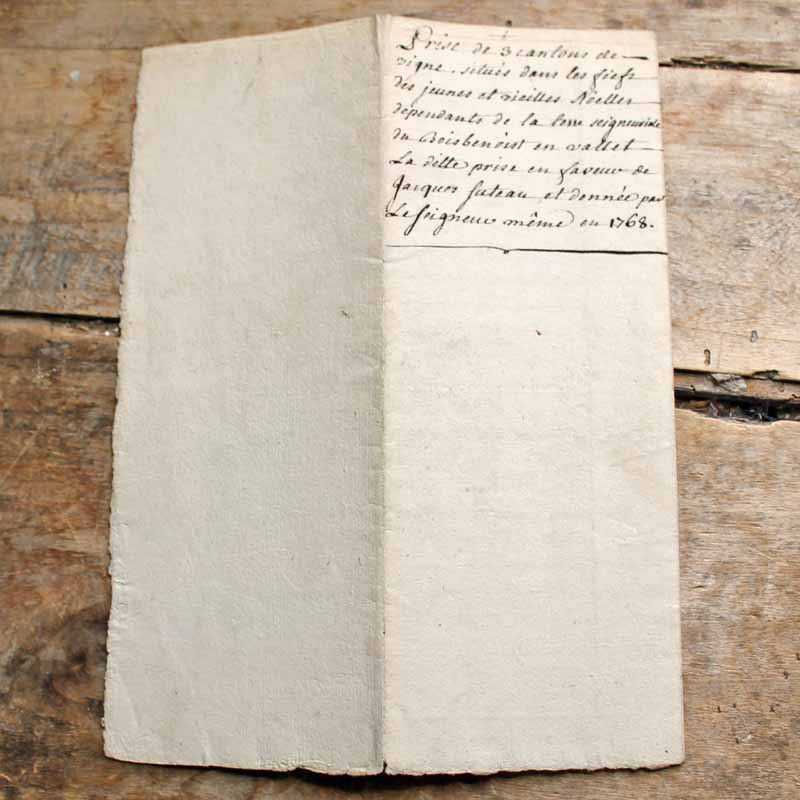 Prise de 3 cantons de
vigne, situés dans les fiefs
des jeunes et vieilles Nöelles
dependants de la terre seigneuriale
du Boisbenoist en vallet
La ditte prise en faveur de
Jacques suteau, et donnée par
Le seigneur même en 1768.